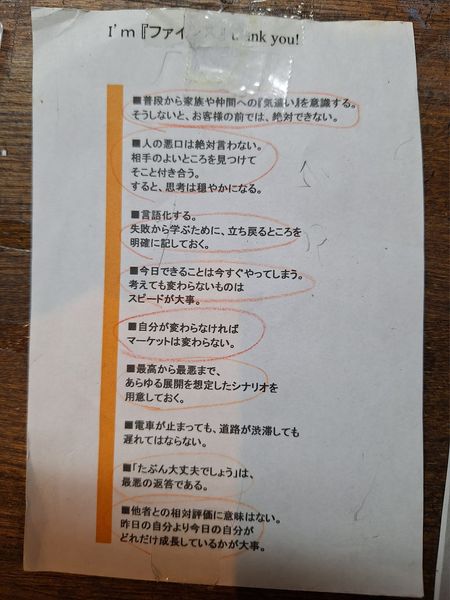 I'm『ファイン thank you!
■普段から家族や仲間への『気遣い』を意識する。
そうしないと、お客様の前では、絶対できない。
■人の悪口は絶対言わない。
相手のよいところを見つけて
そこと付き合う。
すると、思考は穏やかになる。
■言語化する。
失敗から学ぶために、立ち戻るところを
明確に記しておく。
■今日できることは今すぐやってしまう。
考えても変わらないものは
スピードが大事。
■自分が変わらなければ
マーケットは変わらない。
■最高から最悪まで、
あらゆる展開を想定したシナリオを
用意しておく。
■電車が止まっても、道路が渋滞しても
遅れてはならない。
■「たぶん大丈夫でしょう」は、
最悪の返答である。
■他者との相対評価に意味はない。
昨日の自分より今日の自分が
どれだけ成長しているかが大事。